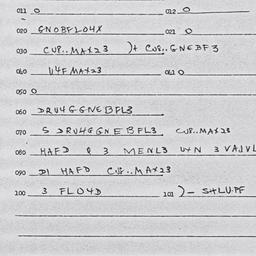 011 0 012 0
020 GNOBFLO4X 021 0
030 CUP..MAX23 )+ CUP..GNEBF3
040 U4FMAX23 041 0
050 0
060 DRU4GGNEBFL3
070 5 DRU4GGNEBFL3 CUP..MAX23
080 HAFD 3 MENL3 U4N 3 VAJVL
090 D1 HAFD CUP..MAX23
100 3 FLO4D 101 )- S4LU.PF